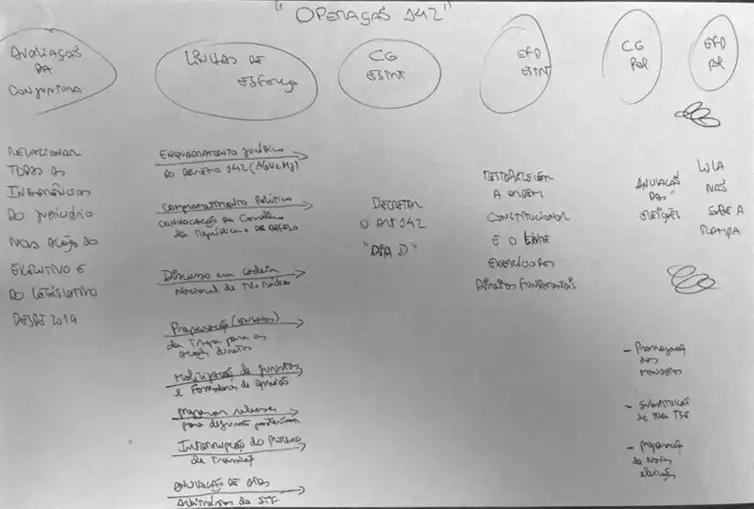 "OPERAÇÃO 142"
AVALIAÇÃO
DA
CONJUNTURA
LINHAS DE
ESFORÇO
CG
ESTRAT
EFD
ESTRAT
CG
POL
EFD
POL
RELACIONAR
TODAS AS
INGERÊNCIAS
DO JUDICIÁRIO
NAS AÇÕES DO
EXECUTIVO E
DO LEGISLATIVO
DESDE 2019
ENQUADRAMENTO JURÍDICO
DO DECRETO 142 (AGU e MJ)
COMPROMETIMENTO POLÍTICO
CONVOCAÇÃO do Conselho
da República e DE DEFESA
Discurso em cadeia
Nacional de TV e Rádio
Preparação
da Tropa para as
ações diretas
Mobilização de juristas
e Formadores de opinião
para
Interrupção do Processo
de Transição
ANULAÇÃO DE ATOS
Arbitrários do STF
DECRETAR
O ART 142
"DIA D"
RESTABELECER
A ORDEM
CONSTITUCIONAL
E O LIVRE
EXERCÍCIO DOS
DIREITOS FUNDAMENTAIS
ANULAÇÃO
DAS
ELEIÇÕES
- Prorrogação
dos
Mandatos
- SUBSTITUIÇÃO
de TODO TSE
- PREPARAÇÃO
de Novas
eleições
LULA
NÃO
SOBE A
RAMPA